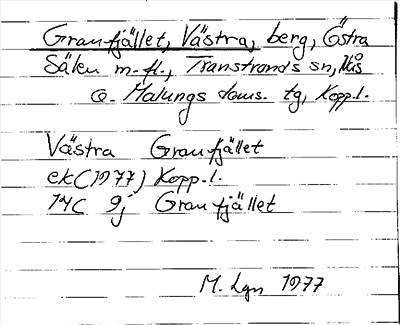 Granfjället, Västra, berg, Östra
Sälen m. fl., Transtrands sn, Nås
o. Malungs doms. tg, Kopp. l.
Västra Granfjället
ek (1977) Kopp. l.
14C 9j Granfjället
M. Lgn 1977